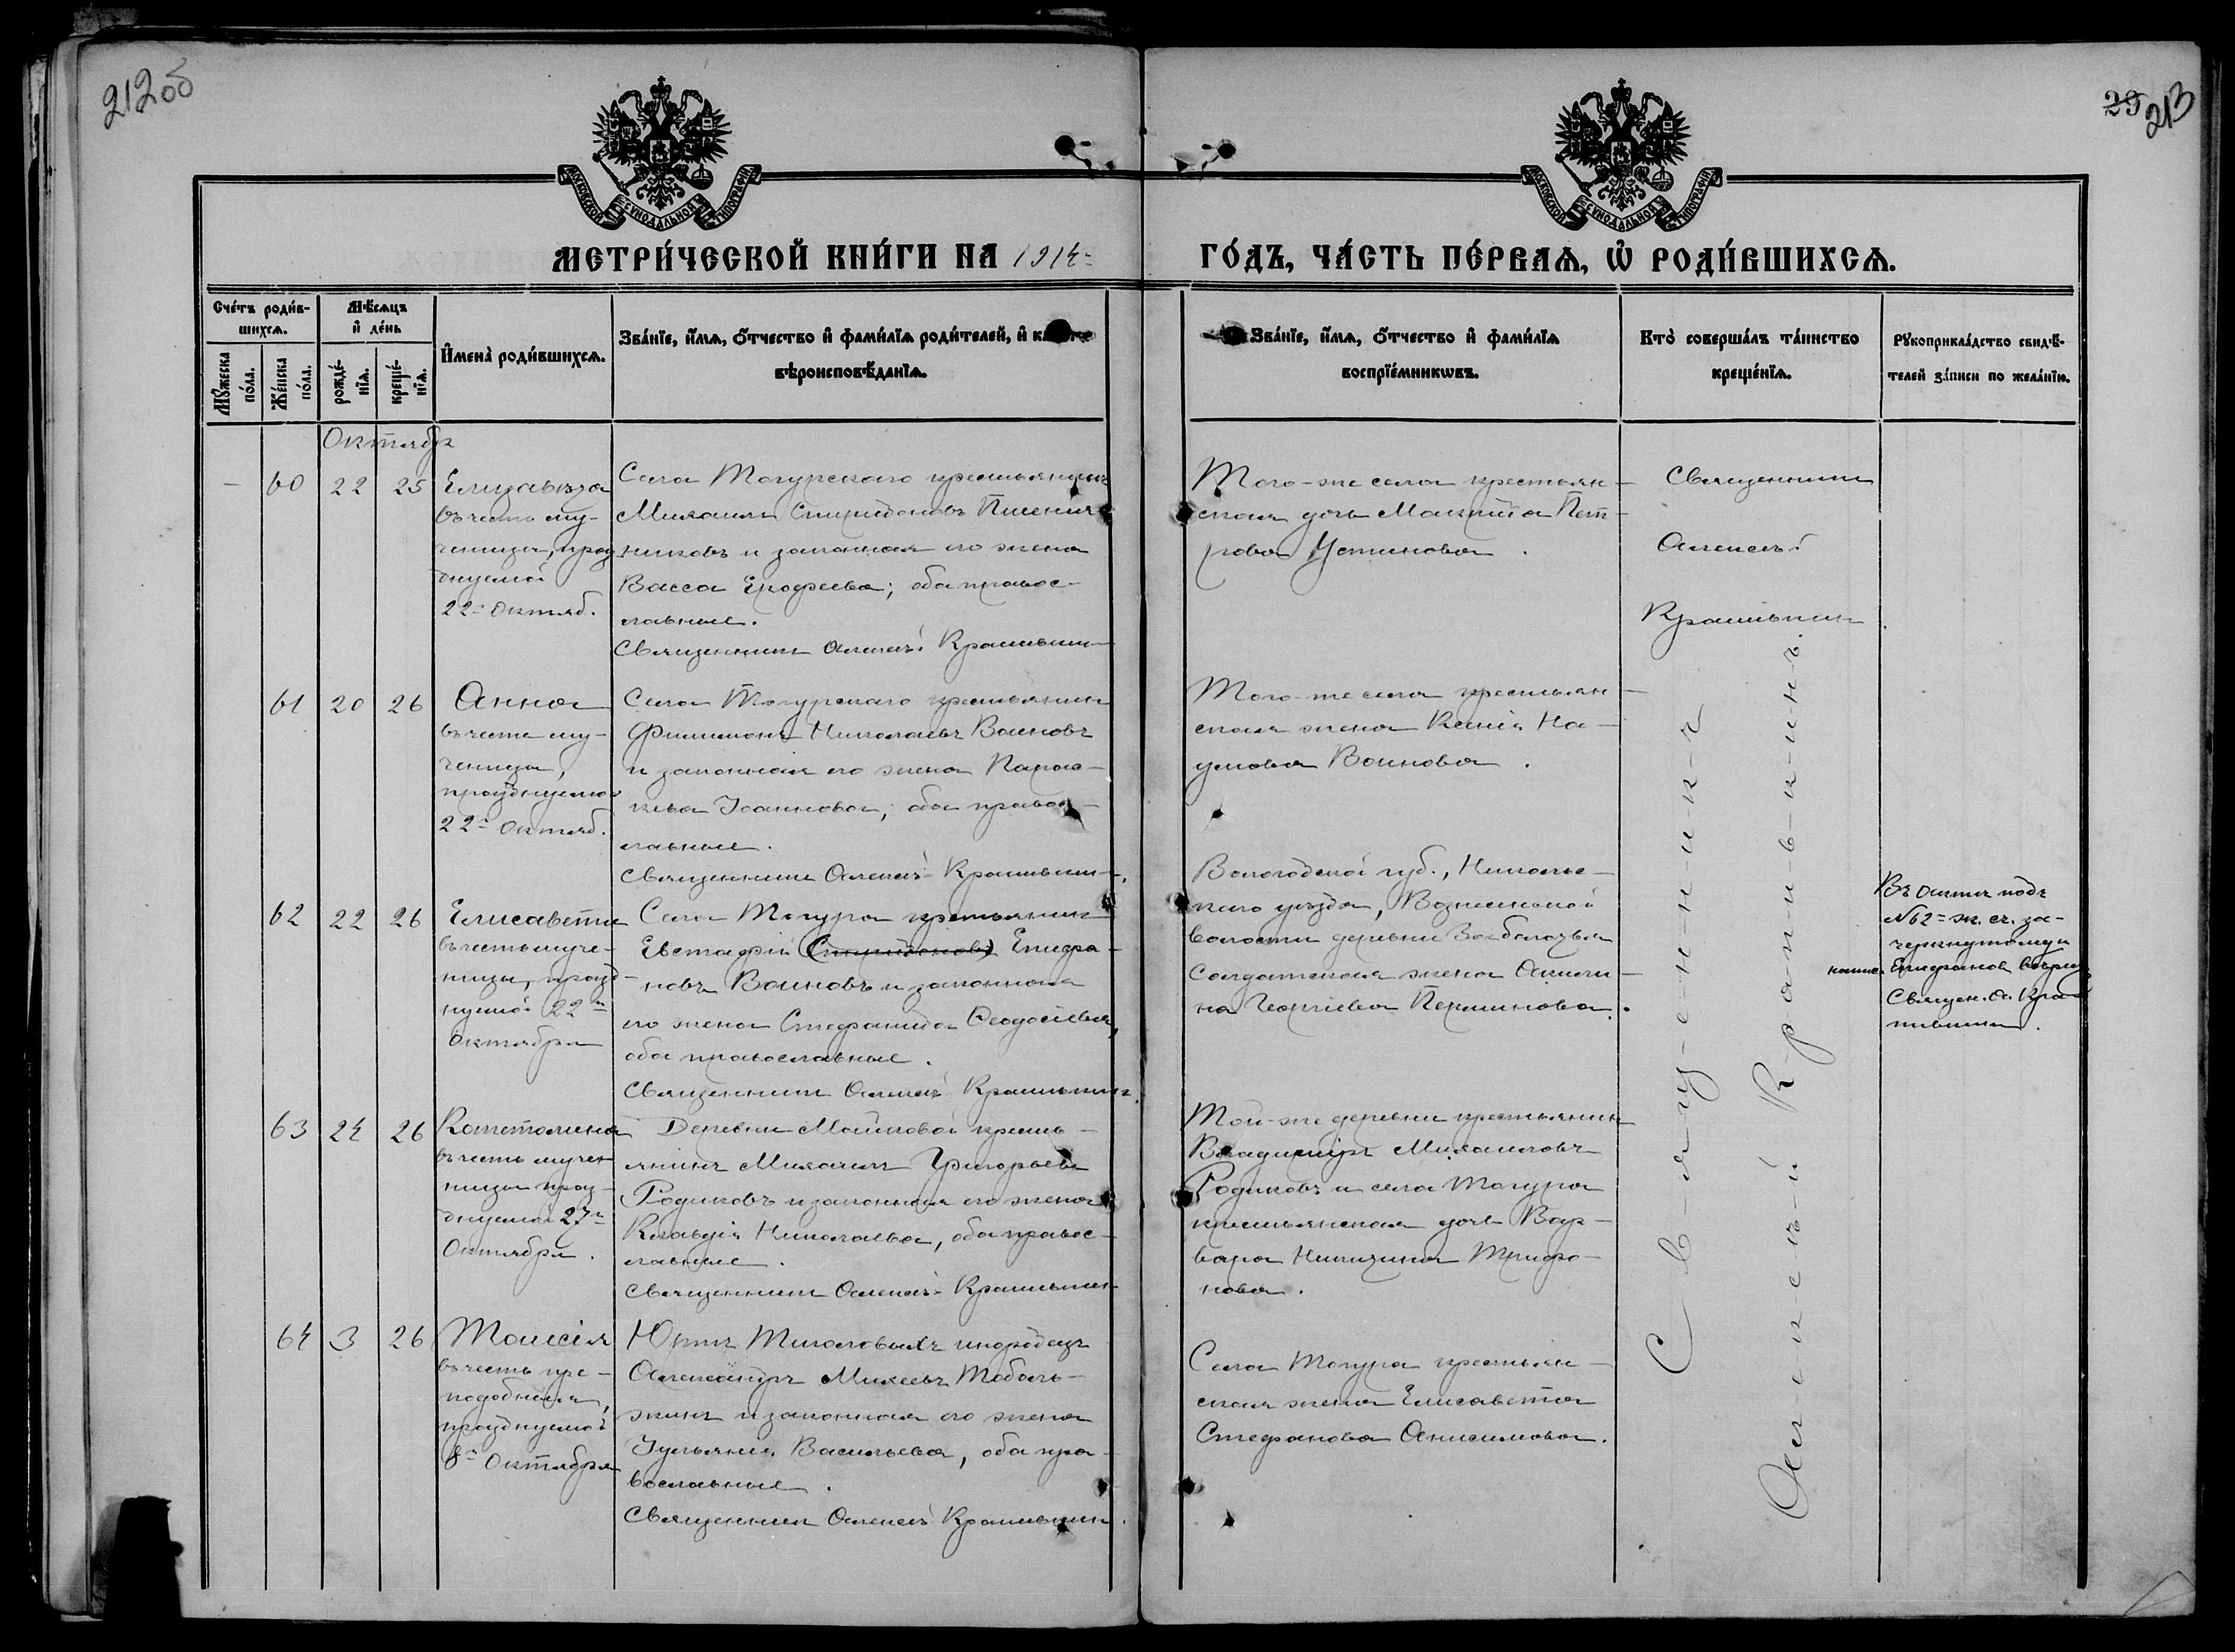 212об
29 213
МОСКОВСКОЙ СѴНОДАЛЬНОЙ ТИПОГРАФІИ
МОСКОВСКОЙ СѴНОДАЛЬНОЙ ТИПОГРАФІИ
МЕТРИ́ЧЕСКОЙ КНИ́ГИ НА 1914-
ГО́ДЪ, ЧА́СТЬ ПЕ́РВАѦ, Ѡ҆ РОДИ́ВШИХСѦ.
Сче́тъ роди́в-
шихсѧ.
Мѣ́сѧцъ
и҆ де́нь
Мꙋ́жеска по́ла.
Же́нска по́ла.
рожде́-нїѧ.
креще́-нїѧ.
И҆мена̀ роди́вшихсѧ.
Зва́нїе, и҆́мѧ, ѻ҆́тчество и҆ фами́лїѧ роди́телей, и҆
вѣроисповѣ́данїѧ.
Зва́нїе, и҆́мѧ, ѻ҆́тчество и҆ фами́лїѧ
воспрїе́мникѡвъ.
Кто̀ соверша́лъ та́инство
креще́нїѧ.
Рꙋкоприкла́дство свидѣ́-
телей за́писи по жела́нїю.
Октябр
– 60 22 25
Елизавета
въ честь му-
ченицы, праз
днуемой
22-Октяб.
Села Тогурскаго крестьянинъ
Михаилъ Спиридоновъ Пшенич
никовъ и законная его жена
Васса Ерофеева; оба правос-
лавные.
Священникъ Алексѣй Крапивкин
Того-же села крестьян-
ская дочь Пет-
рова Устинова.
Священникъ
Алексѣй
Крапивкин
61 20 26
Анна
въ честь му-
ченицы,
празднуемой
22-Октяб.
Села Тогурскаго крестьянинъ
Филимонъ Николаевъ Воиновъ
и законная его жена Парас-
кева Іоаннова; оба правос-
лавные.
Священникъ Алексѣй Крапивкин.
Того-же села крестьян-
ская жена Ксенія На-
умова Воинова.
62 22 26
Елисавета
въ честь муче-
ницы, празд-
нуемой 22-
Октября
Села Тогура крестьянинъ
Евстафій (Спиридоновъ) Епифа-
новъ Воиновъ и законная
его жена Стефанида Ѳеодосіева,
оба православные.
Священникъ Алексѣй Крапивкинъ.
Вологодской губ., Николь-
скаго уѣзда, Вознесенской
волости деревни Заболотья
Солдатская жена Акили-
на Георгіева Перминова.
Въ актѣ подъ
№62-ж. сч. за-
черкнутому и
напис. Епифанов вѣрить
Священ. А. Кра
пивкин.
63 24 26
Капетолина
въ честь мучен
ницы праз-
днуемой 27-
Октября.
Деревни Майковой кресть-
янинъ Михаилъ Григорьевъ
Родиковъ и законная его жена
Клавдія Николаева, оба правос-
лавные.
Священникъ Алексѣй Крапивкин
Той-же деревни крестьянинъ
Владимиръ Михаиловъ
Родиковъ и села Тогура
крестьянская дочь Вар-
вара Никитина Трифо-
нова.
64 3 26
Таисія
въ честь пре-
подобныя,
празднуемой
8-Октября
Юртъ Тискиновыхъ инородецъ
Александръ Михеевъ Тоболь-
жинъ и законная его жена
Іуліанія Васильева, оба пра-
вославные.
Священникъ Алексѣй Крапивкин.
Села Тогура крестьян-
ская жена Елисавета
Стефанова Анисимова.
С-в-я-щ-е-н-н-и-к-ъ
А-л-е-к-с-ѣ-й К-р-а-п-и-в-к-и-н-ъ.